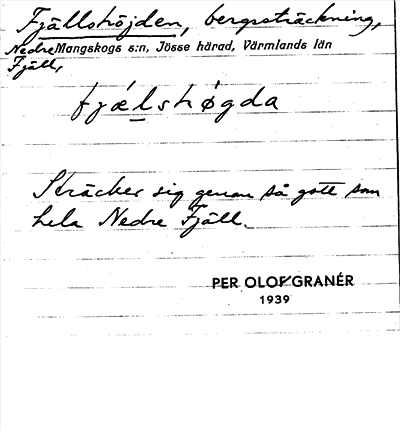 Fjällshöjden, bergssträckning,
Nedre Mangskogs s:n, Jösse härad, Värmlands län
Fjäll,
fjælshøgda
Sträcker sig genom så gott som
hela Nedre Fjäll.
PER OLOF GRANÉR
1939